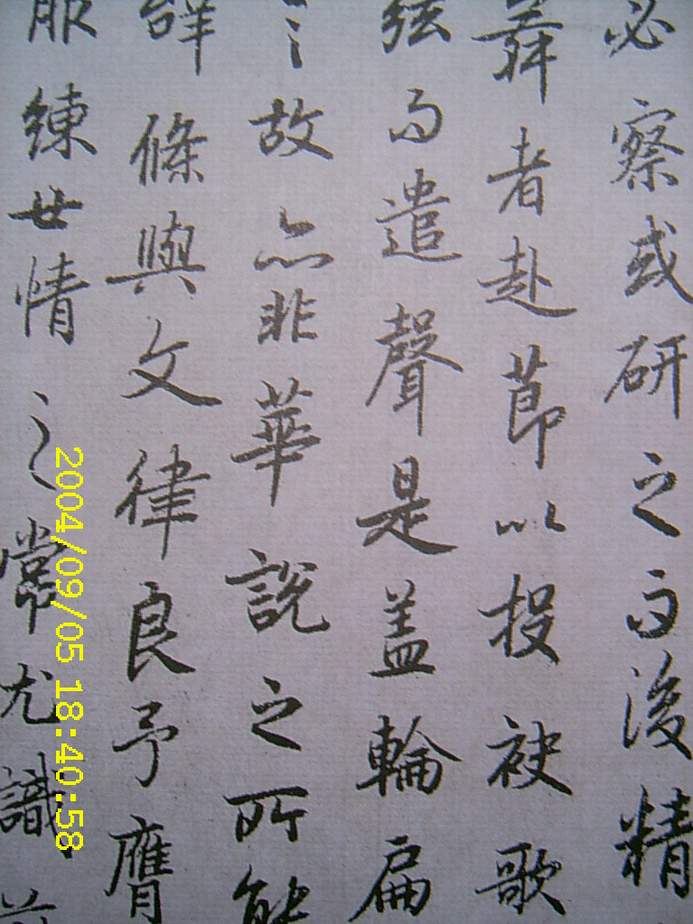 必察或研之而後精
舞者赴莭以投袂歌
弦而遣聲是盖輪扁
故亦非華說之所能
條與文律良予膺
服練世情之常尤識
2004/09/05 18:40:58